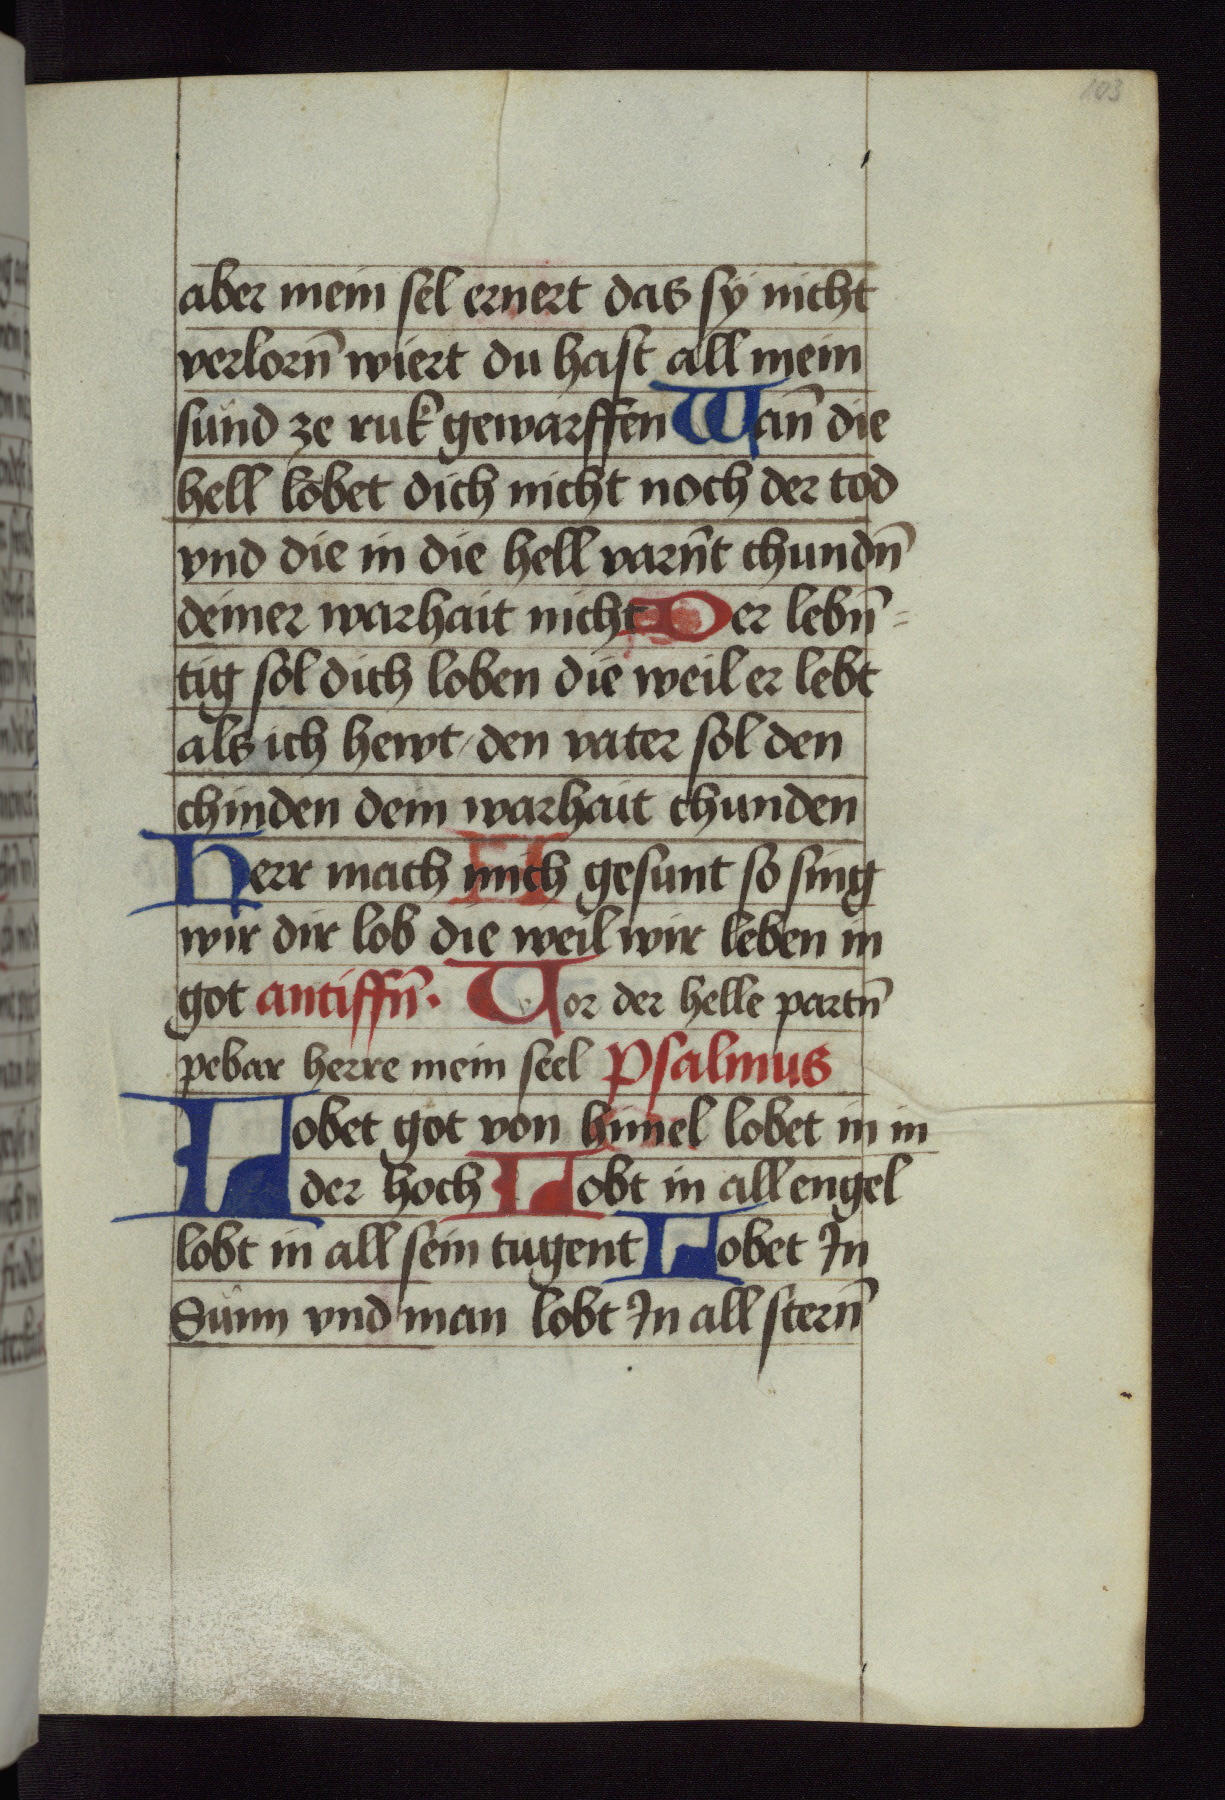 103
aber mein sel ernert das sÿ nicht
verlorn̄ wiert du hast all mein
sund ze ruk gewarffen Wan̄ die
hell lobet dich nicht noch der tod
vnd die in die hell varn̄t chundn̄
deiner warhait nicht Der lebn̄-
tig sol dich loben die weil er lebt
als ich hewt / den vater sol den
chinden dein warhait chunden
Herr mach mich gesunt so sing
wir dir lob die weil wir leben in
got antiffn̄. Vor der helle partn̄
pebar herre mein seel Psalmus
Lobet got von himel lobet in in
der hoch Lobt in all engel
lobt in all sein tugent Lobet In
Sunn vnd man lobt In all stern̄